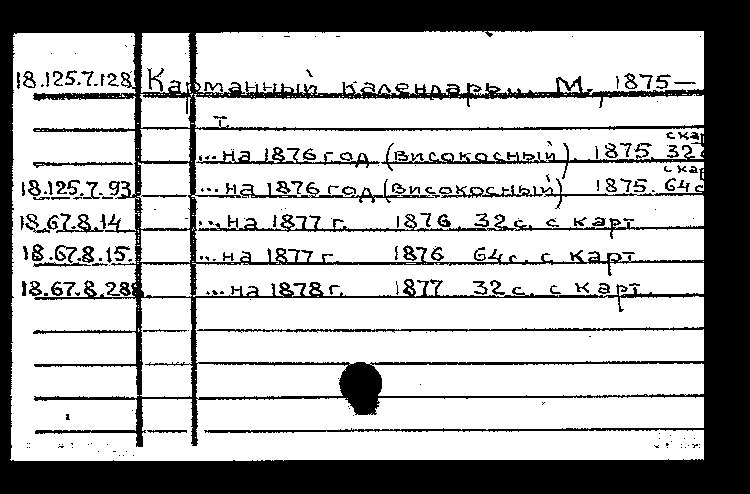 18.125.7.128 Карманный календарь... М., 1875—
т.
с кар
...на 1876 год (високосный). 1875. 32с
с кар
18.125.7.93 ...на 1876 год (високосный) 1875. 64с
18.67.8.14 ...на 1877 г. 1876. 32 с. с карт
18.67.8.15. ...на 1877 г. 1876 64 с. с карт
18.67.8.288. ...на 1878 г. 1877 32 с. с карт.